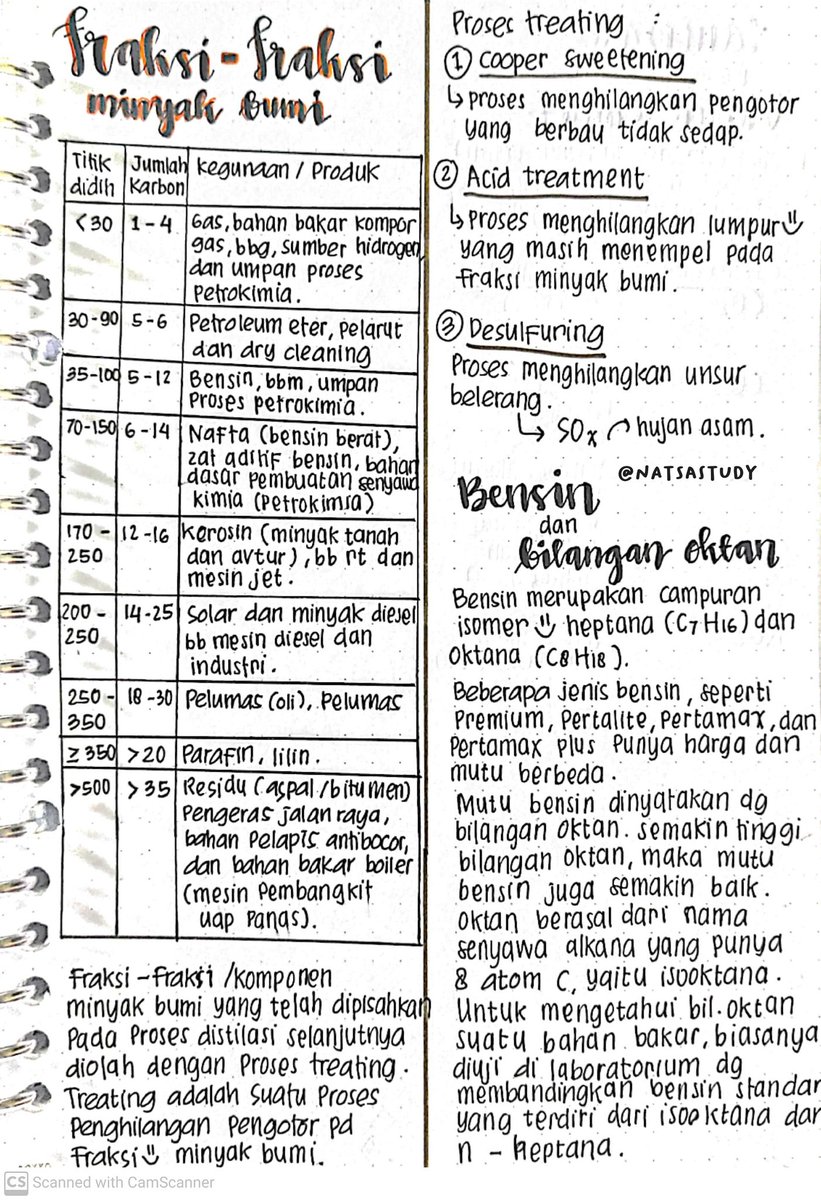 Fraksi-fraksi
minyak bumi
Titik didih | Jumlah Karbon | Kegunaan / Produk
<30 | 1-4 | Gas, bahan bakar kompor
gas, bbg, sumber hidrogen
dan umpan proses
petrokimia.
30-90 | 5-6 | Petroleum eter, pelarut
dan dry cleaning
35-100 | 5-12 | Bensin, bbm, umpan
proses petrokimia.
70-150 | 6-14 | Nafta (bensin berat),
zat aditif bensin, bahan
dasar pembuatan senyawa
kimia (petrokimia)
170-250 | 12-16 | Kerosin (minyak tanah
dan avtur), bb rt dan
mesin jet.
200-250 | 14-25 | Solar dan minyak diesel
bb mesin diesel dan
industri.
250-350 | 18-30 | Pelumas (oli), Pelumas
≥350 | >20 | Parafin, lilin.
>500 | >35 | Residu (aspal/bitumen)
Pengeras jalan raya,
bahan pelapis antibocor,
dan bahan bakar boiler
(mesin pembangkit
uap panas).
Fraksi-fraksi /komponen
minyak bumi yang telah dipisahkan
pada proses distilasi selanjutnya
diolah dengan proses treating.
Treating adalah suatu proses
penghilangan pengotor pd
fraksi² minyak bumi.
Proses treating :
① Cooper sweetening
↳ Proses menghilangkan pengotor
yang berbau tidak sedap.
② Acid treatment
↳ Proses menghilangkan lumpur²
yang masih menempel pada
fraksi minyak bumi.
③ Desulfuring
Proses menghilangkan unsur
belerang.
↳ SOx → hujan asam.
@NATSASTUDY
Bensin
dan
bilangan oktan
Bensin merupakan campuran
isomer² heptana (C7H16) dan
oktana (C8H18).
Beberapa jenis bensin, seperti
Premium, Pertalite, Pertamax, dan
Pertamax plus punya harga dan
mutu berbeda.
Mutu bensin dinyatakan dg
bilangan oktan. semakin tinggi
bilangan oktan, maka mutu
bensin juga semakin baik.
Oktan berasal dari nama
senyawa alkana yang punya
8 atom C, yaitu isooktana.
Untuk mengetahui bil.oktan
suatu bahan bakar, biasanya
diuji di laboratorium dg
membandingkan bensin standar
yang terdiri dari isooktana dan
n-heptana.
CS Scanned with CamScanner